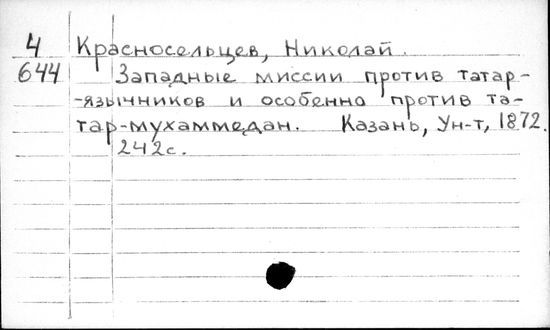 4 Красносельцев, Николай.
644 Западные миссии против татар-
-язычников и особенно против та-
тар-мухаммедан. Казань, Ун-т, 1872.
242с.